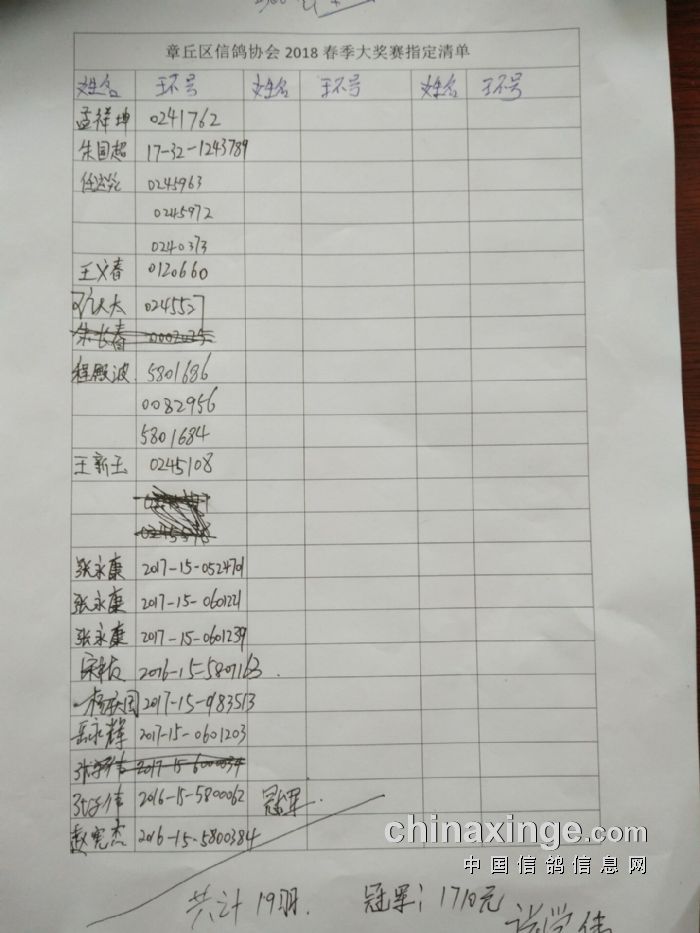 章丘区信鸽协会2018春季大奖赛指定清单
姓名 王不号 姓名 王不号 姓名 王不号
孟祥坤 0241762
朱国超 17-32-1243789
0245963
0245972
0240373
王义春 0120660
0245527
朱长春
程殿波. 5801686
0082956
5801684
王新玉 0245108
张永康 2017-15-052470
张永康 2017-15-0601221
张永康 2017-15-0601239
2016-15-5807163
2017-15-0183513
岳永辉 2017-15-0601203
2017-15-6000034
2016-15-5800062 冠军.
赵宪杰 2016-15-5800384
共计19羽. 冠军: 1710元
chinaxinge.com
中国信鸽信息网